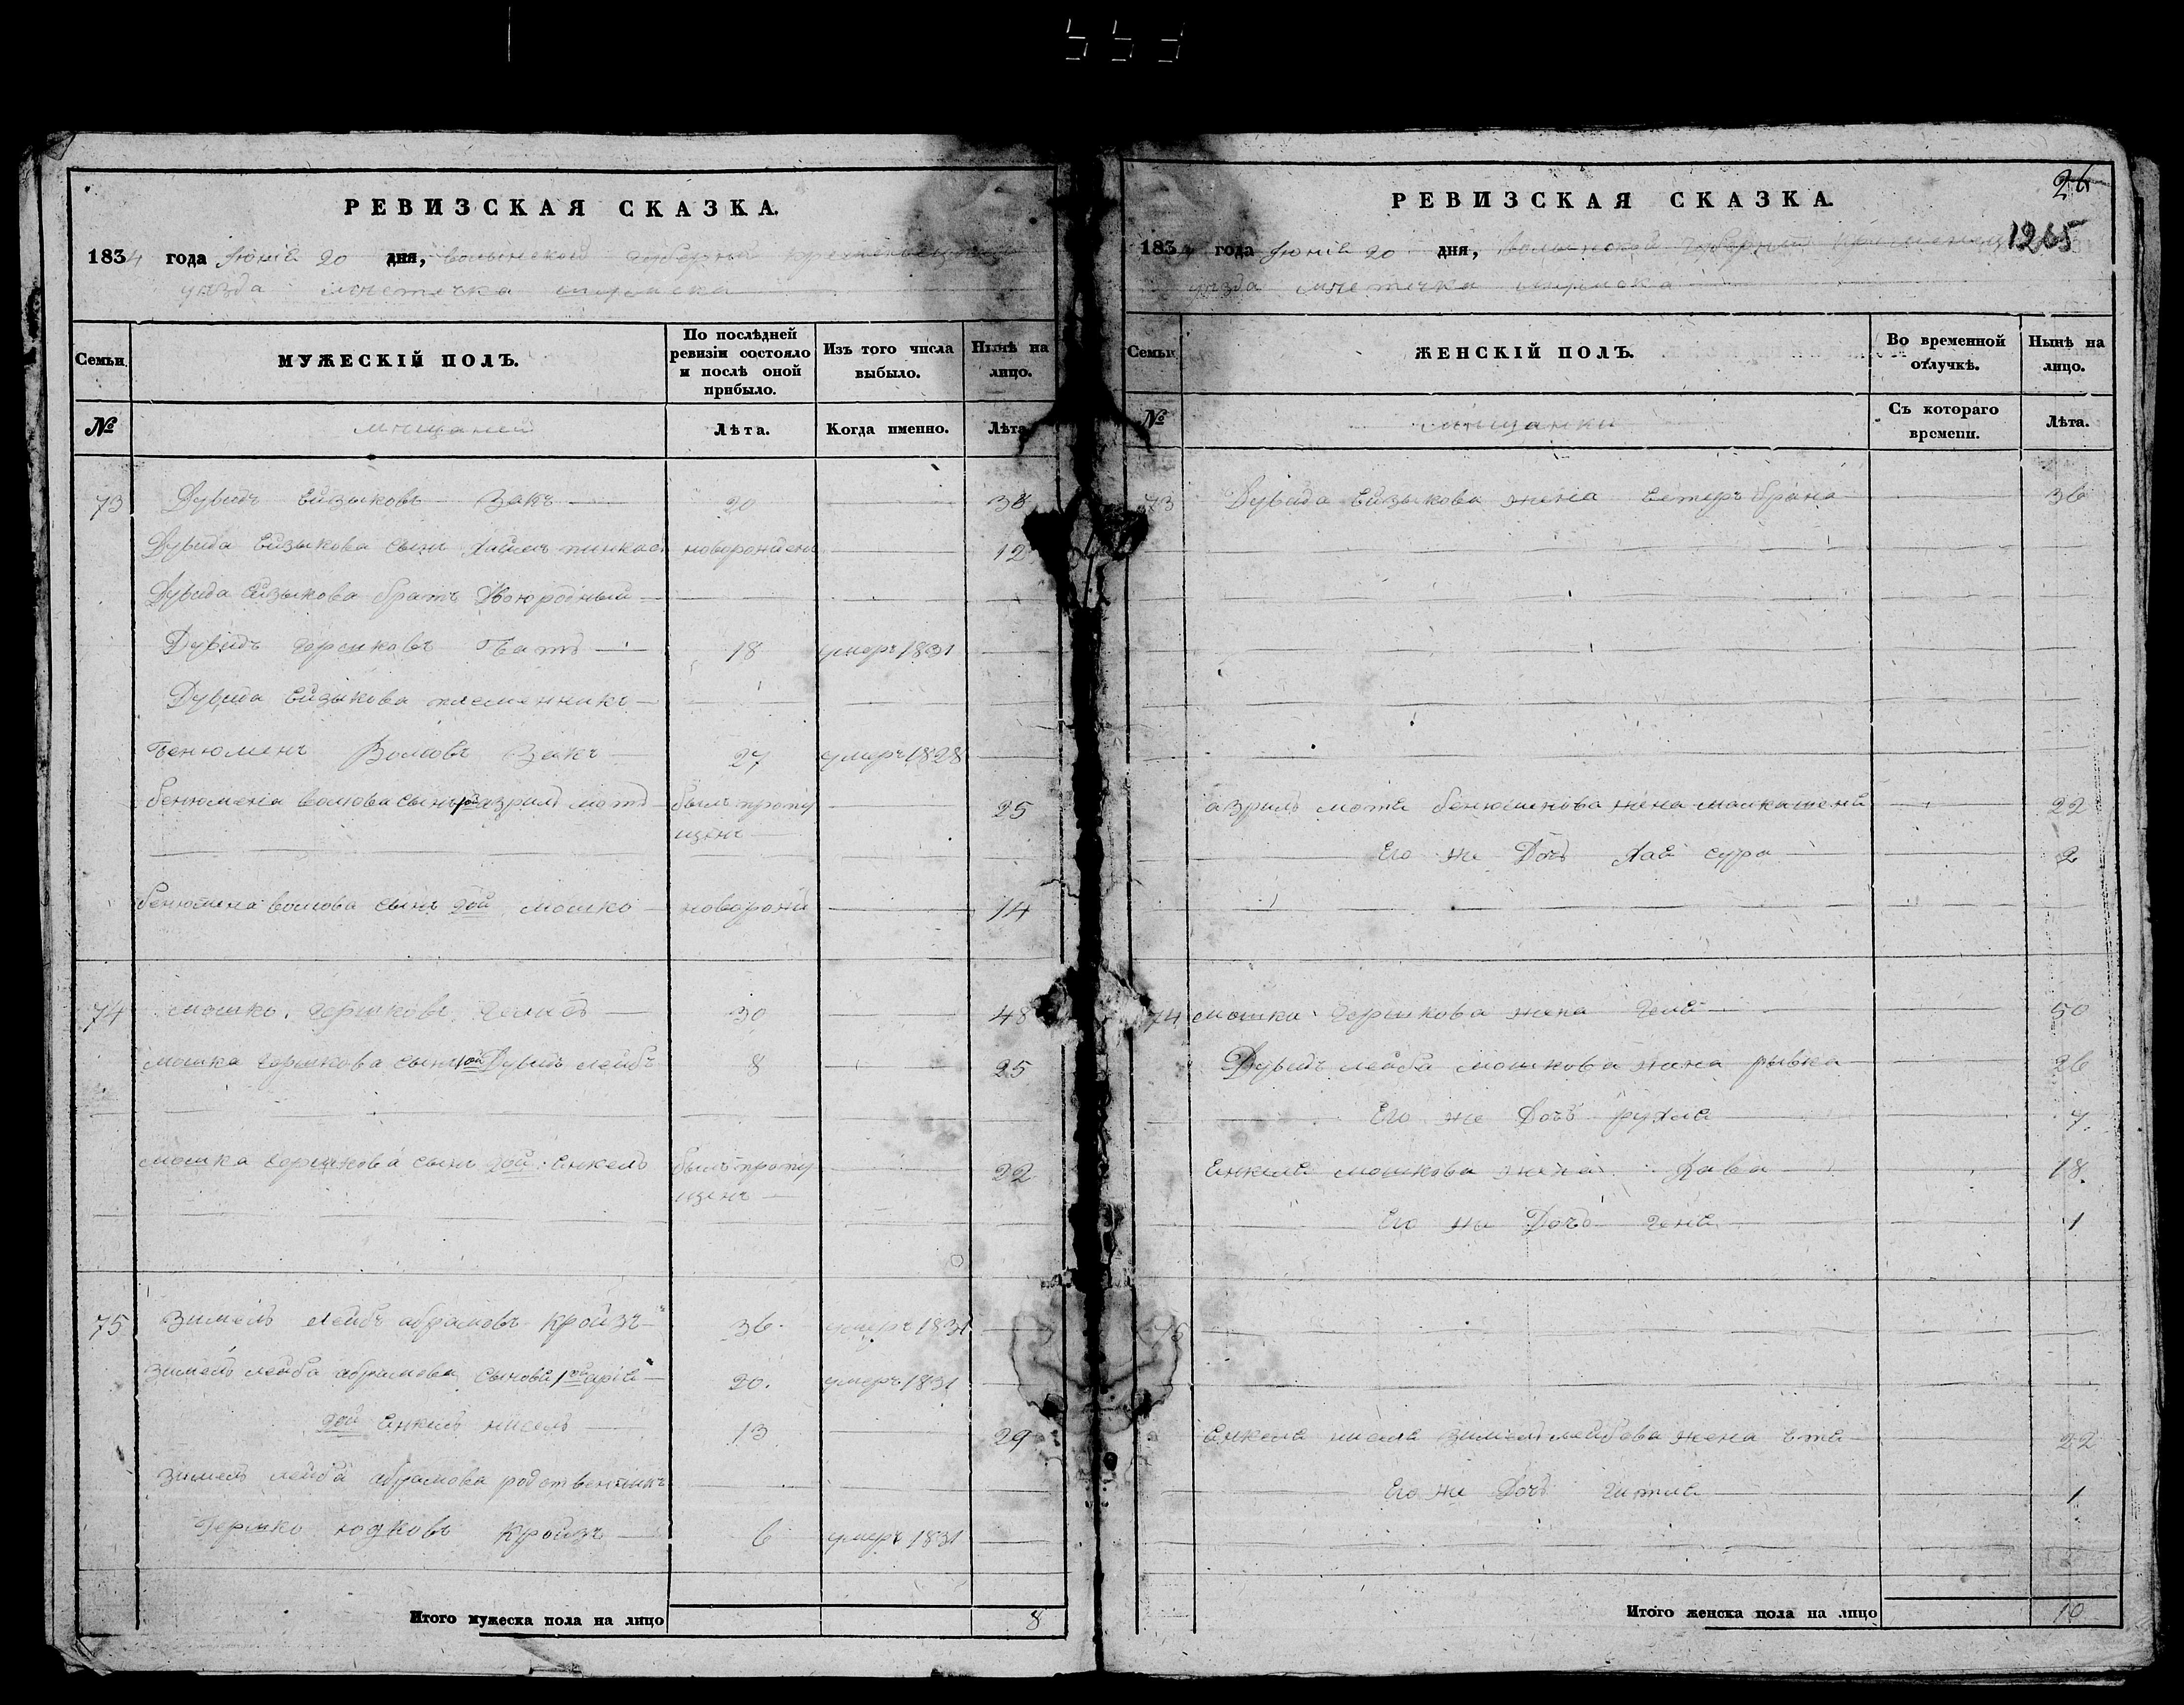 РЕВИЗСКАЯ СКАЗКА.
1834 года Июня 20 дня, Волынской Губернии Кременецкаго
уезда местечка
Семьи.
МУЖЕСКІЙ ПОЛЪ.
По послѣдней ревизіи состояло и послѣ оной прибыло.
Изъ того числа выбыло.
Нынѣ на лицо.
№
мещане
Лѣта.
Когда именно.
Лѣта.
73 Дувидъ Ейзыковъ Закъ 20 38
Дувида Ейзыкова сынъ Хаимъ пинкас новорожденъ 12
Дувида Ейзыкова братъ Двоюродный
Дувидъ Гершковъ 18 умеръ 1831
Дувида Ейзыкова племянникъ
Бенюменъ Волковъ Закъ 27 умеръ 1828
бенюмена волкова сынъ 1ой азриль мотъ былъ пропу 25
щенъ
бенюмена волкова сынъ 2ой мошко новорожд 14
74 мошко Гершковъ 30 48
мошка Гершкова сынъ 1ой Дувидъ лейбъ 8 25
мошка Гершкова сынъ 2ой Енкель былъ пропу 22
щенъ
75 Зимель лейбъ абрамовъ Кройзъ 36 умеръ 1831
Зимель лейба абрамова сыновья 1ой арія 20. умеръ 1831
2ой Енкель нисель 13 29
Зимель лейба абрамова родственникъ
Гершко юдковъ Кройзъ 6 умеръ 1831
Итого мужеска пола на лицо 8
26
1265
РЕВИЗСКАЯ СКАЗКА.
1834 года Июня 20 дня, Волынской Губернии Кременец
уезда местечка
Семьи.
ЖЕНСКІЙ ПОЛЪ.
Во временной отлучкѣ.
Нынѣ на лицо.
№
мещанки
Съ котораго времени.
Лѣта.
73 Дувида Ейзыкова жена Естеръ брана 36
азриль мотя бенюменова жена 22
Его же Дочь Хая сура 2
74 мошка Гершкова жена 50
Дувидъ лейба мошкова жена рывка 26
Его же Дочь рухля 7
Енкеля мошкова жена Хава 18.
Его же Дочь 1
75
Енкеля нисела зимель лейбова жена 22
Его же Дочь Гитля 1
Итого женска пола на лицо 10